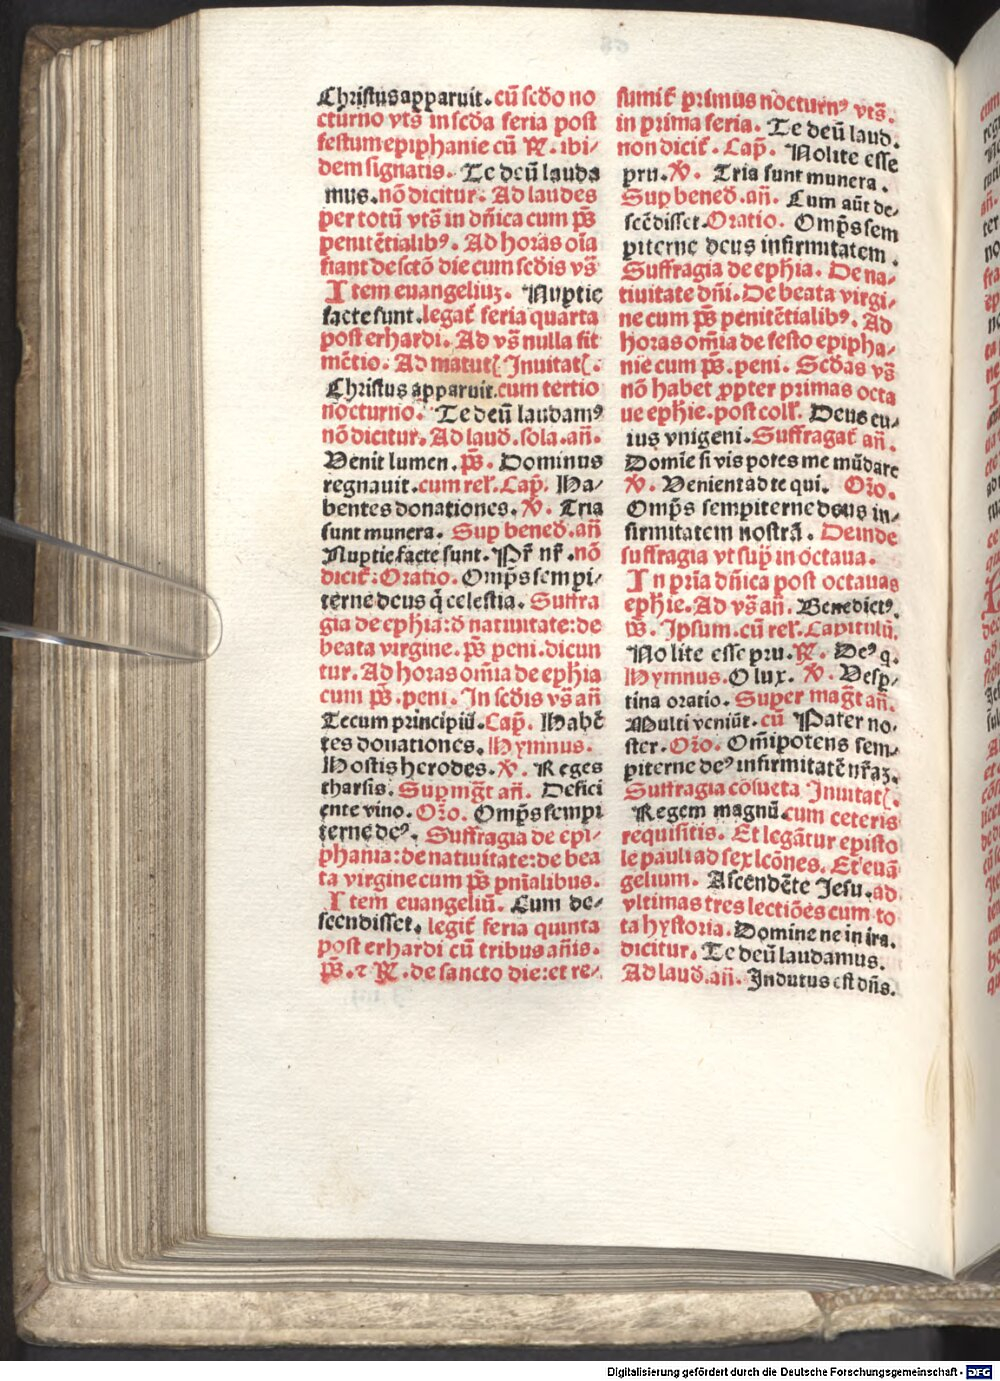 Christus apparuit. cū scdo no
cturno vts in scda feria post
festum epiphanie cū ℟. ibi⸗
dem signatis. Te deū lauda
mus. nō dicitur. Ad laudes
per totū vts in dñica cum p̄s
penitētialibꝰ. Ad horas oīa
fiant de sctō die cum scdis vs̄
Item euangeliuꝫ. Nuptie
facte sunt. legaṫ feria quarta
post erhardi. Ad vs̄ nulla fit
mētio. Ad matuť Inuitať.
Christus apparuit. cum tertio
nocturno. Te deū laudamꝰ
nō dicitur. Ad laud̄. sola. añ.
Venit lumen. p̄s. Dominus
regnauit. cum reľ. Cap̄. Ha⸗
bentes donationes. ℣. Tria
sunt munera. Sup bened̄. añ
Nuptie facte sunt. Pr̄ nr̄. nō
diciť: Oratio. Omp̄s sempi⸗
terne deus q̄ celestia. Suffra
gia de epħia: d̄ natiuitate: de
beata virgine. p̄s peni. dicun
tur. Ad horas om̄ia de epħia
cum p̄s. peni. In scdis vs̄ añ
Tecum principiū. Cap̄. Habē
tes donationes. Hymnus.
Hostis herodes. ℣. Reges
tharsis. Sup mḡt añ. Defici
ente vino. Or̄o. Omp̄s sempi
terne deꝰ. Suffragia de epi⸗
phania: de natiuitate: de bea
ta virgine cum p̄s pnīalibus.
Item euangeliū. Cum de⸗
scendisset. legiť feria quinta
post erhardi cū tribus añis.
p̄s. ⁊ ℟. de sancto die: et re⸗
sumiť primus nocturnꝰ vts̄.
in prima feria. Te deū laud.
non diciť. Cap̄. Nolite esse
pru. ℣. Tria sunt munera.
Sup bened̄. añ. Cum aūt de⸗
scēdisset. Oratio. Omp̄s sem
piterne deus infirmitatem.
Suffragia de epħia. De na⸗
tiuitate dñi. De beata virgi⸗
ne cum p̄s penitētialibꝰ. Ad
horas om̄ia de festo epipha⸗
nie cum p̄s. peni. Scdas vs̄
nō habet ꝓpter primas octa
ue epħie. post colľ. Deus cu⸗
ius vnigeni. Suffragať añ.
Domīe si vis potes me mūdare
℣. Venient ad te qui. Or̄o.
Omp̄s sempiterne deus in⸗
firmitatem nostrā. Deinde
suffragia vt sup̄ in octaua.
In prīa dñica post octauas
epħie. Ad vs̄ añ. Benedictꝰ.
p̄s. Ipsum. cū reľ. Capitulū.
Nolite esse pru. ℟. Deꝰ q.
Hymnus. O lux. ℣. Vesp̄⸗
tina oratio. Super maḡt añ.
Multi veniūt. cū Pater no⸗
ster. Or̄o. Om̄ipotens sem⸗
piterne deꝰ infirmitatē nr̄aꝫ.
Suffragia cōsueta Inuitať.
Regem magnū. cum ceteris
requisitis. Et legātur episto
le pauli ad sex lcōnes. Et euā
gelium. Ascendēte Jesu. ad
vltimas tres lectiōes cum to
ta hystoria. Domine ne in ira.
dicitur. Te deū laudamus.
Ad laud̄. añ. Indutus est dñs.
Digitalisierung gefördert durch die Deutsche Forschungsgemeinschaft - DFG